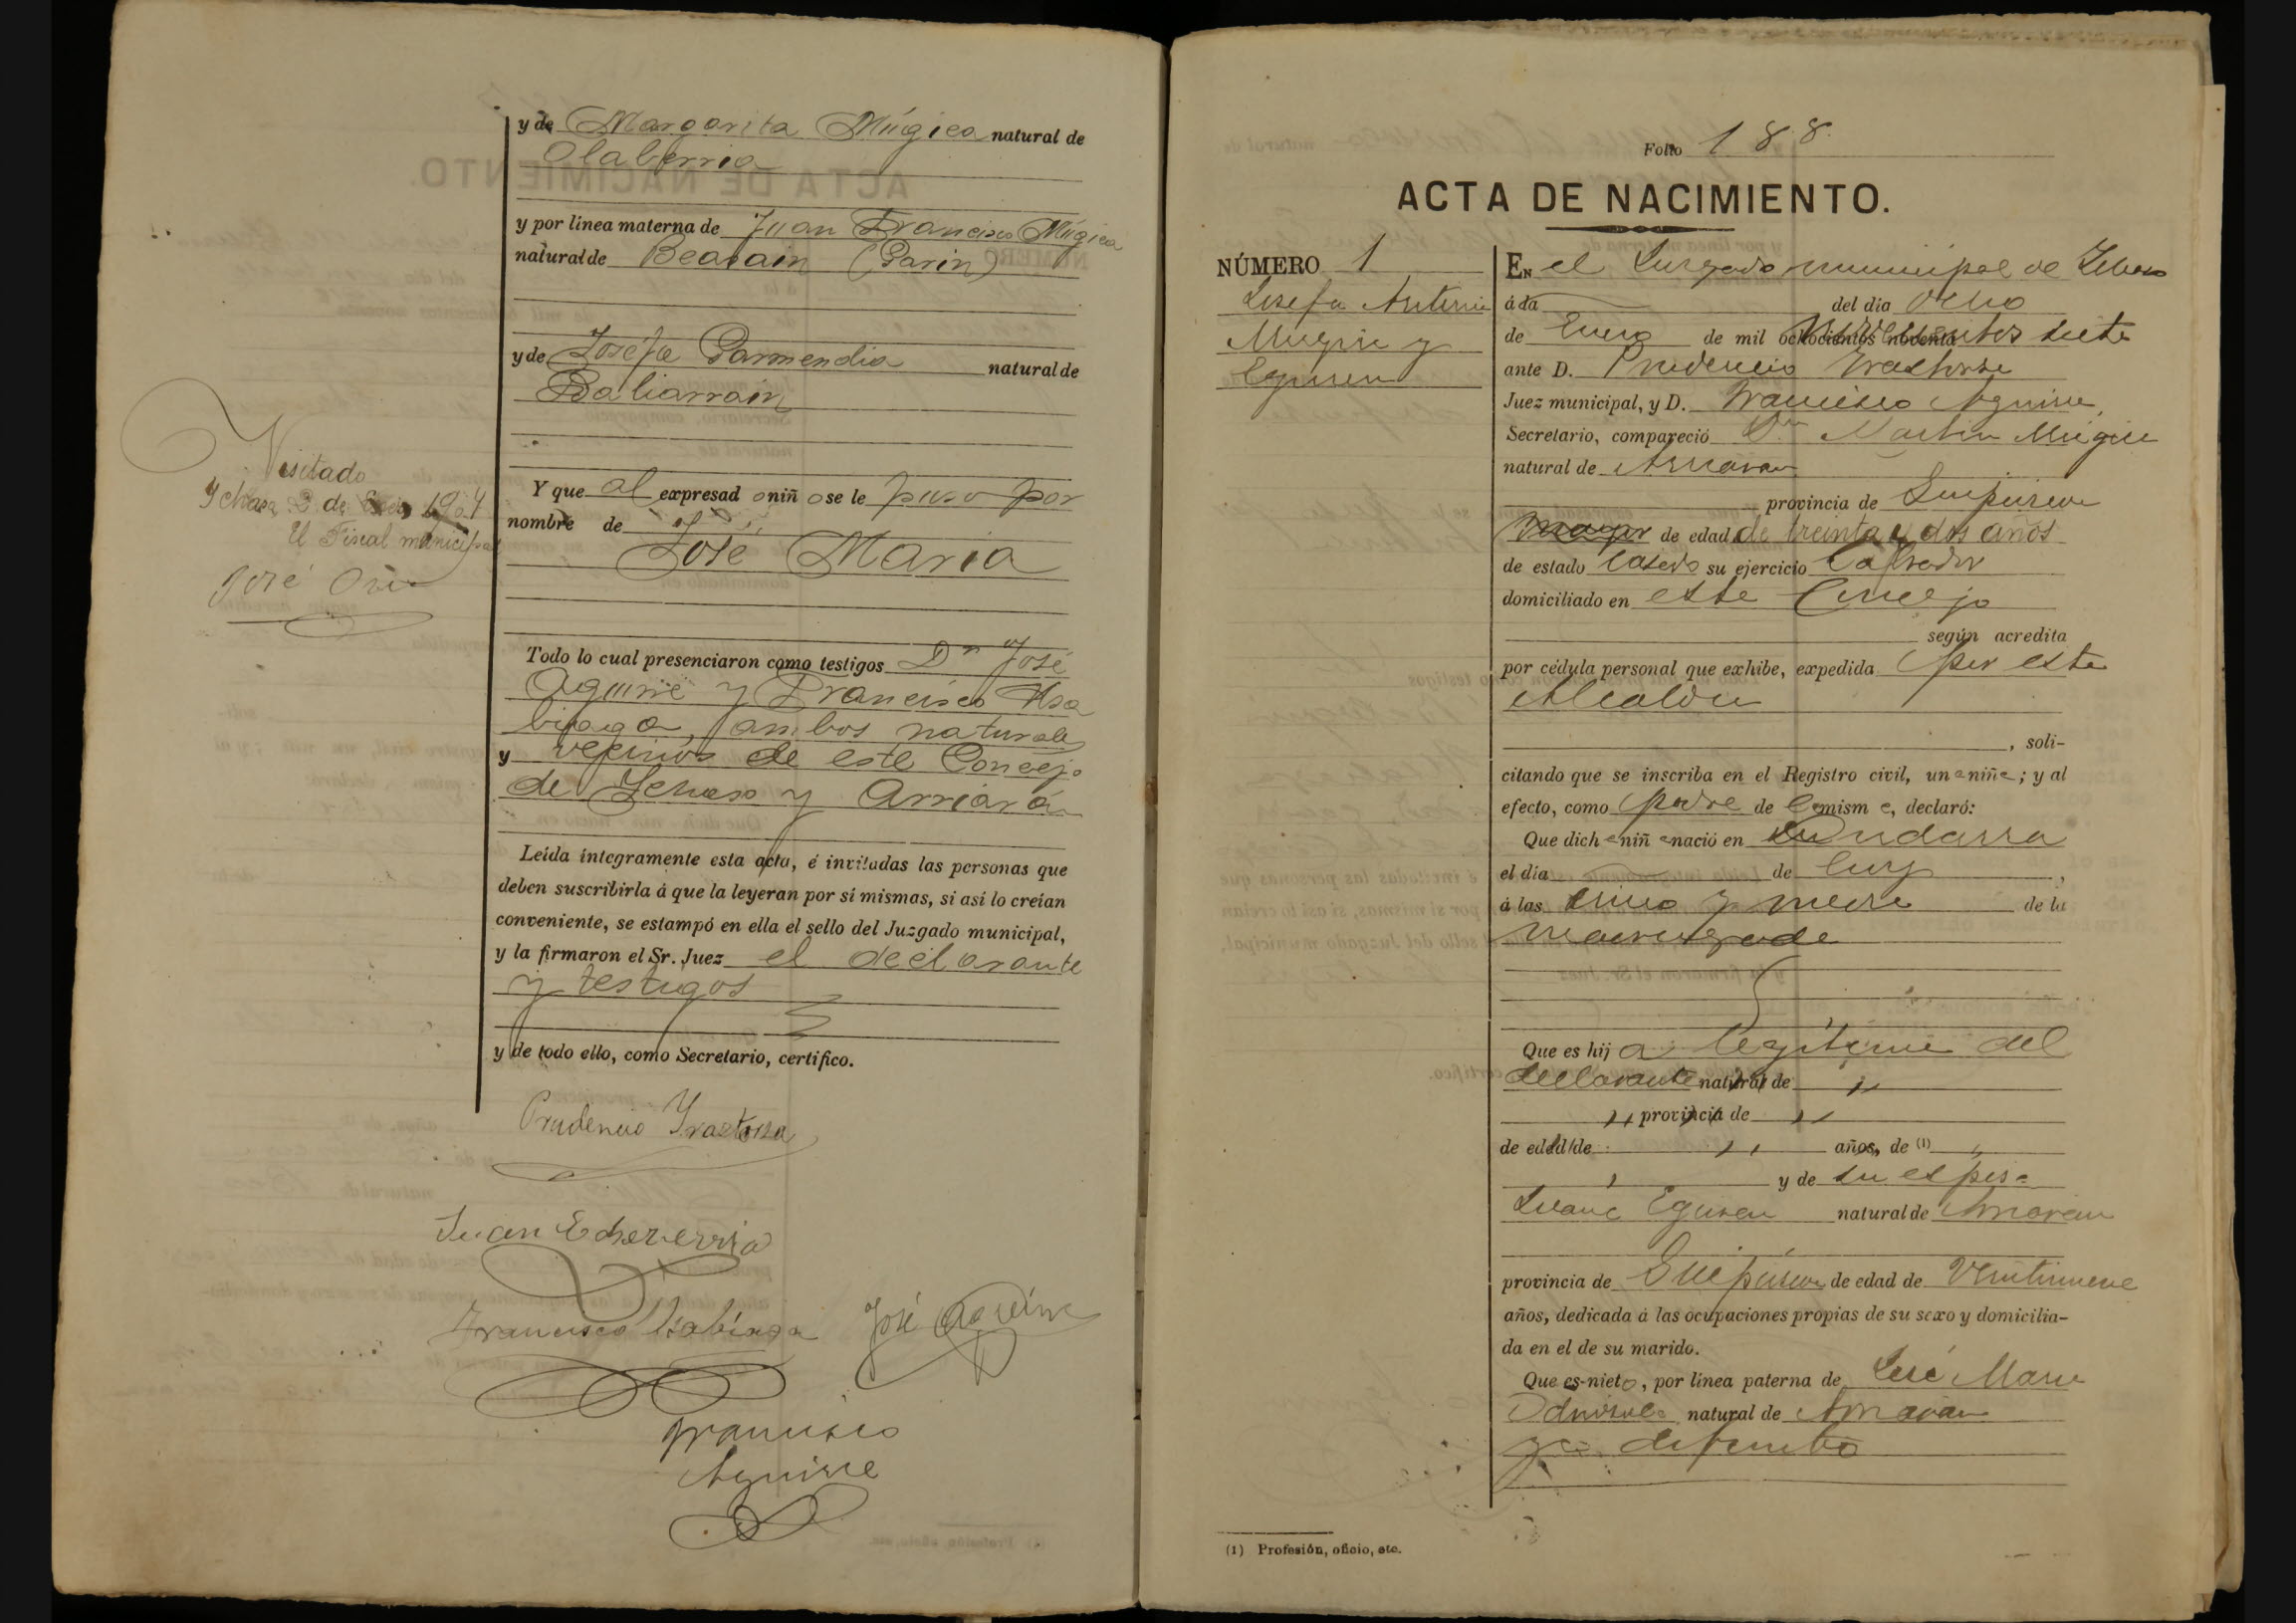 y de Margarita Múgica natural de
Olaberria
y por línea materna de Juan Francisco Múgica
natural de Beasain (Garin)
y de Josefa Garmendia natural de
Baliarrain
Y que al expresad o niñ o se le puso por
nombre de
José Maria
Todo lo cual presenciaron como testigos Dn José
Aguirre y Francisco Ysa
biaga, ambos naturales
y vecinos de este Concejo
de Ichaso y Arriarán
Leída íntegramente esta acta, é invitadas las personas que
deben suscribirla á que la leyeran por sí mismas, si así lo creían
conveniente, se estampó en ella el sello del Juzgado municipal,
y la firmaron el Sr. Juez el declarante
y testigos
y de todo ello, como Secretario, certifico.
Prudencio Yrastorza
Juan Echeverria
Francisco Isabiaga José Aguirre
Francisco
Aguirre
Visitado
Ichaso 2 de Enero 1907
El Fiscal municipal
José
Folio 188
ACTA DE NACIMIENTO.
NÚMERO 1
Josefa Antonia
Mugica y
Eguren
En el Juzgado municipal de Ichaso
á la del día ocho
de Enero de mil ochocientos noventa novecientos siete
ante D. Prudencio Yrastorza
Juez municipal, y D. Francisco Aguirre,
Secretario, compareció Dn Martin Múgica
natural de Astigarreta
provincia de Guipúzcoa
mayor de edad de treinta y dos años
de estado Casado su ejercicio Labrador
domiciliado en este Concejo
según acredita
por cédula personal que exhibe, expedida por esta
Alcaldia
, soli-
citando que se inscriba en el Registro civil, un a niña; y al
efecto, como padre de la mism a, declaró:
Que dich a niñ a nació en
el día de hoy,
á las cinco y media de la
madrugada
Que es hij a legitima del
declarante natural de "
" provincia de "
de edad de " años, de (1) "
y de su esposa
Juana Eguren natural de
provincia de Guipúzcoa de edad de Veintinueve
años, dedicada á las ocupaciones propias de su sexo y domicilia-
da en el de su marido.
Que es nieto, por línea paterna de José Maria
natural de
ya difunto
(1) Profesión, oficio, etc.